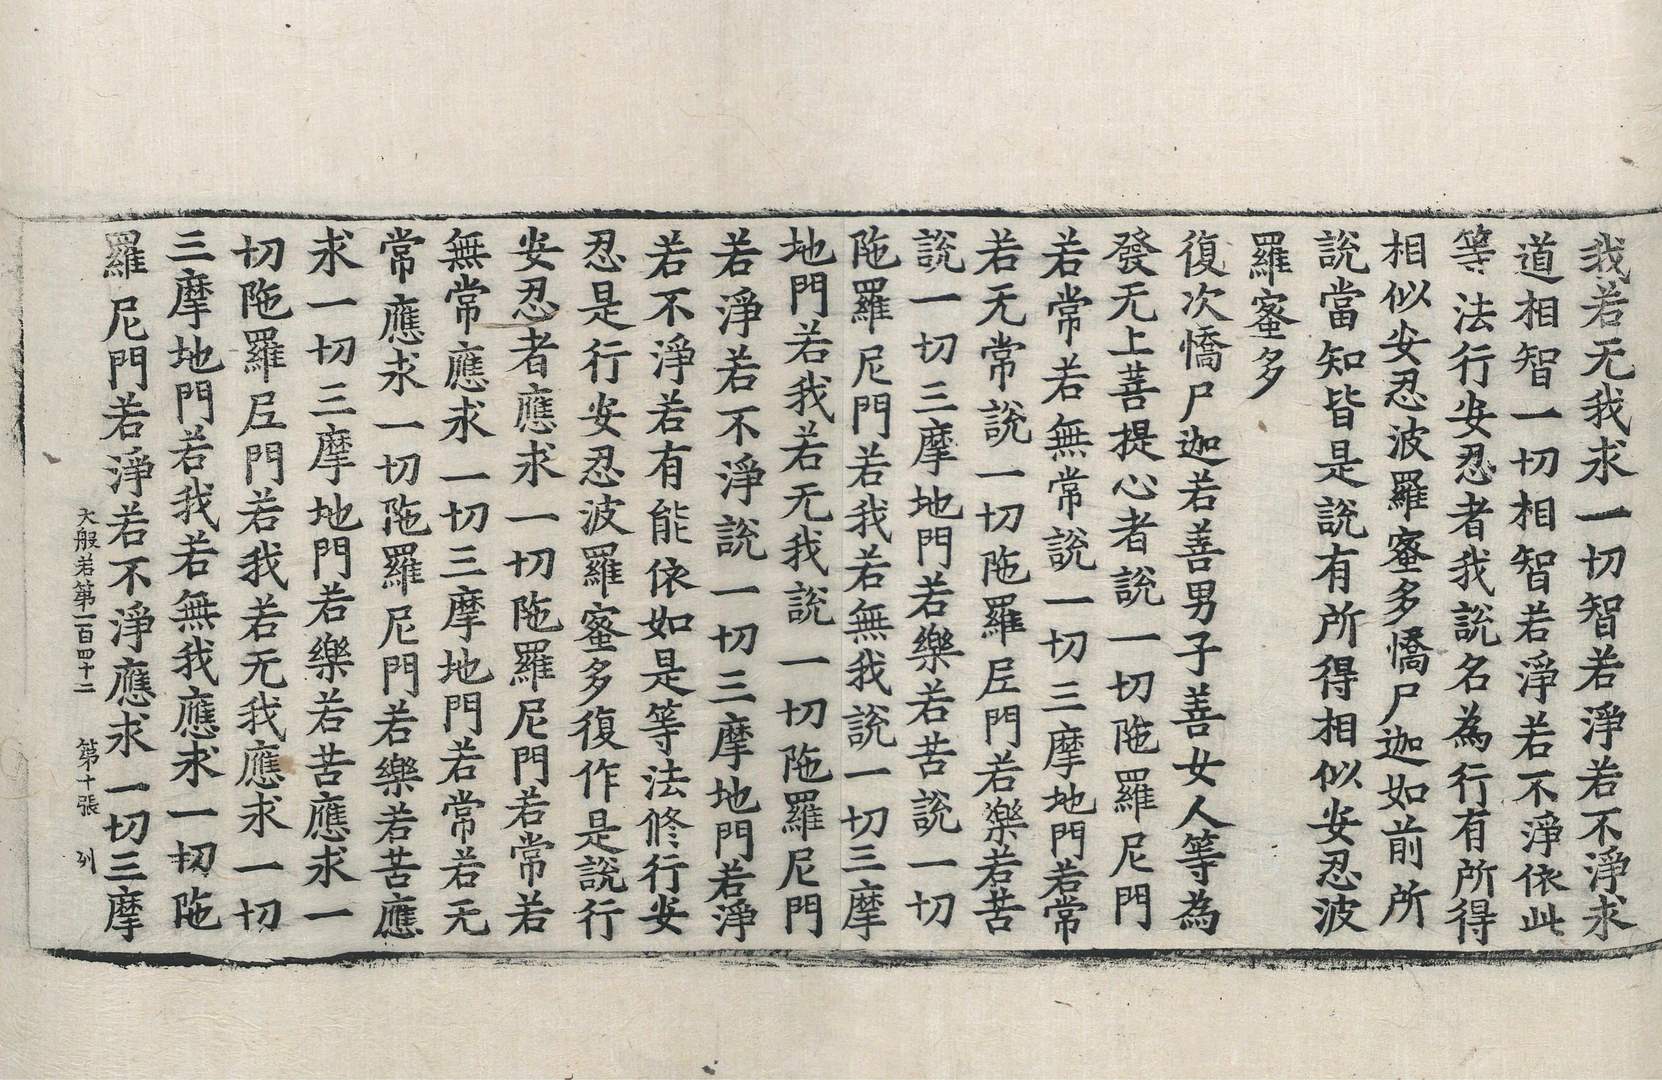 我若无我求一切智若淨若不淨求
道相智一切相智若淨若不淨依此
等法行安忍者我說名為行有所得
相似安忍波羅蜜多憍尸迦如前所
說當知皆是說有所得相似安忍波
羅蜜多
復次憍尸迦若善男子善女人等為
發无上菩提心者說一切陁羅尼門
若常若無常說一切三摩地門若常
若无常說一切陁羅尼門若樂若苦
說一切三摩地門若樂若苦說一切
陁羅尼門若我若無我說一切三摩
地門若我若无我說一切陁羅尼門
若淨若不淨說一切三摩地門若淨
若不淨若有能依如是等法修行安
忍是行安忍波羅蜜多復作是說行
安忍者應求一切陁羅尼門若常若
無常應求一切三摩地門若常若无
常應求一切陁羅尼門若樂若苦應
求一切三摩地門若樂若苦應求一
切陁羅尼門若我若无我應求一切
三摩地門若我若無我應求一切陁
羅尼門若淨若不淨應求一切三摩
大般若第一百四十二 第十張 列